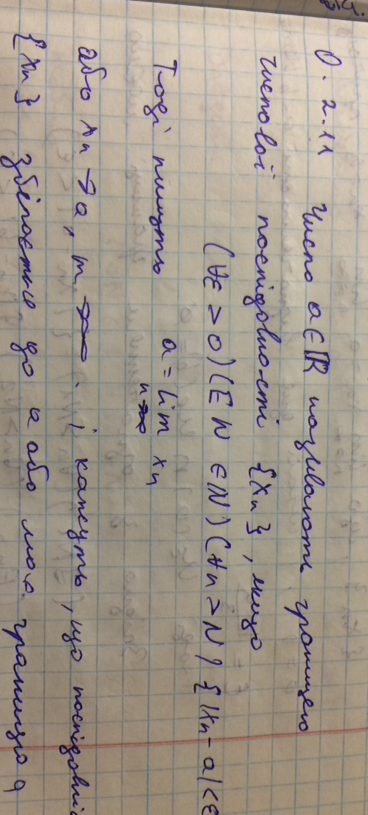 О. 2.11 Число a∈ℝ називають границею
числової послідовності {xₙ}, якщо
(∀ε>0)(∃N∈N)(∀n>N){|xₙ-a|<ε
Тоді пишуть a = lim xₙ
n→∞
або xₙ→a, n→∞. і кажуть, що послідовні
{xₙ} збігається до a або має границю a